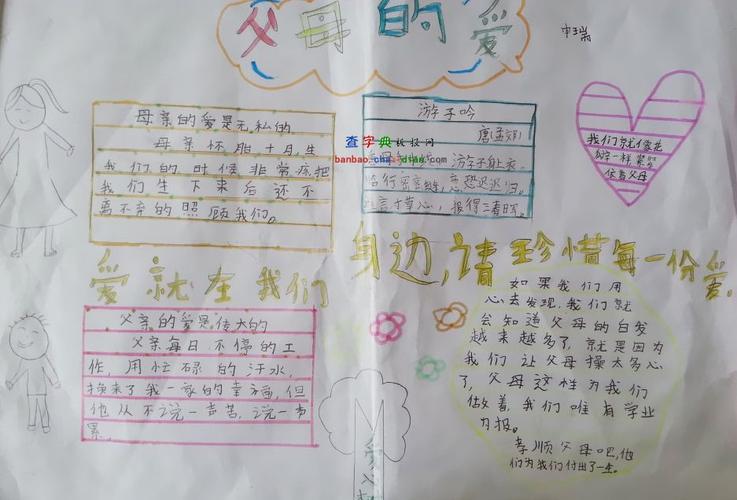 父母的爱
母亲的爱是无私的
母亲怀胎十月,生
我们的时候非常疼把
我们生下来后还不
离不弃的照顾我们。
游子吟
唐孟郊
游子身上衣。
临行密密缝,意恐迟迟归。
言寸草心,报得三春晖。
我们就像花
一样,紧紧
依着父母
查字典手抄报网
banbao.chazidian.com
爱就在我们身边,请珍惜每一份爱.
父亲的爱是伟大的
父亲每日不停的工
作,用忙碌的汗水,
换来了我一家的幸福,但
他从不说一声苦,说一声
累。
如果我们用
心去发现,我们就
会知道父母的白发
越来越多了,就是因为
我们让父母操太多心
了,父母这性为我们
做着,我们唯有学业
为报。
孝顺父母吧,他
们为我们付出了一生。
爱父